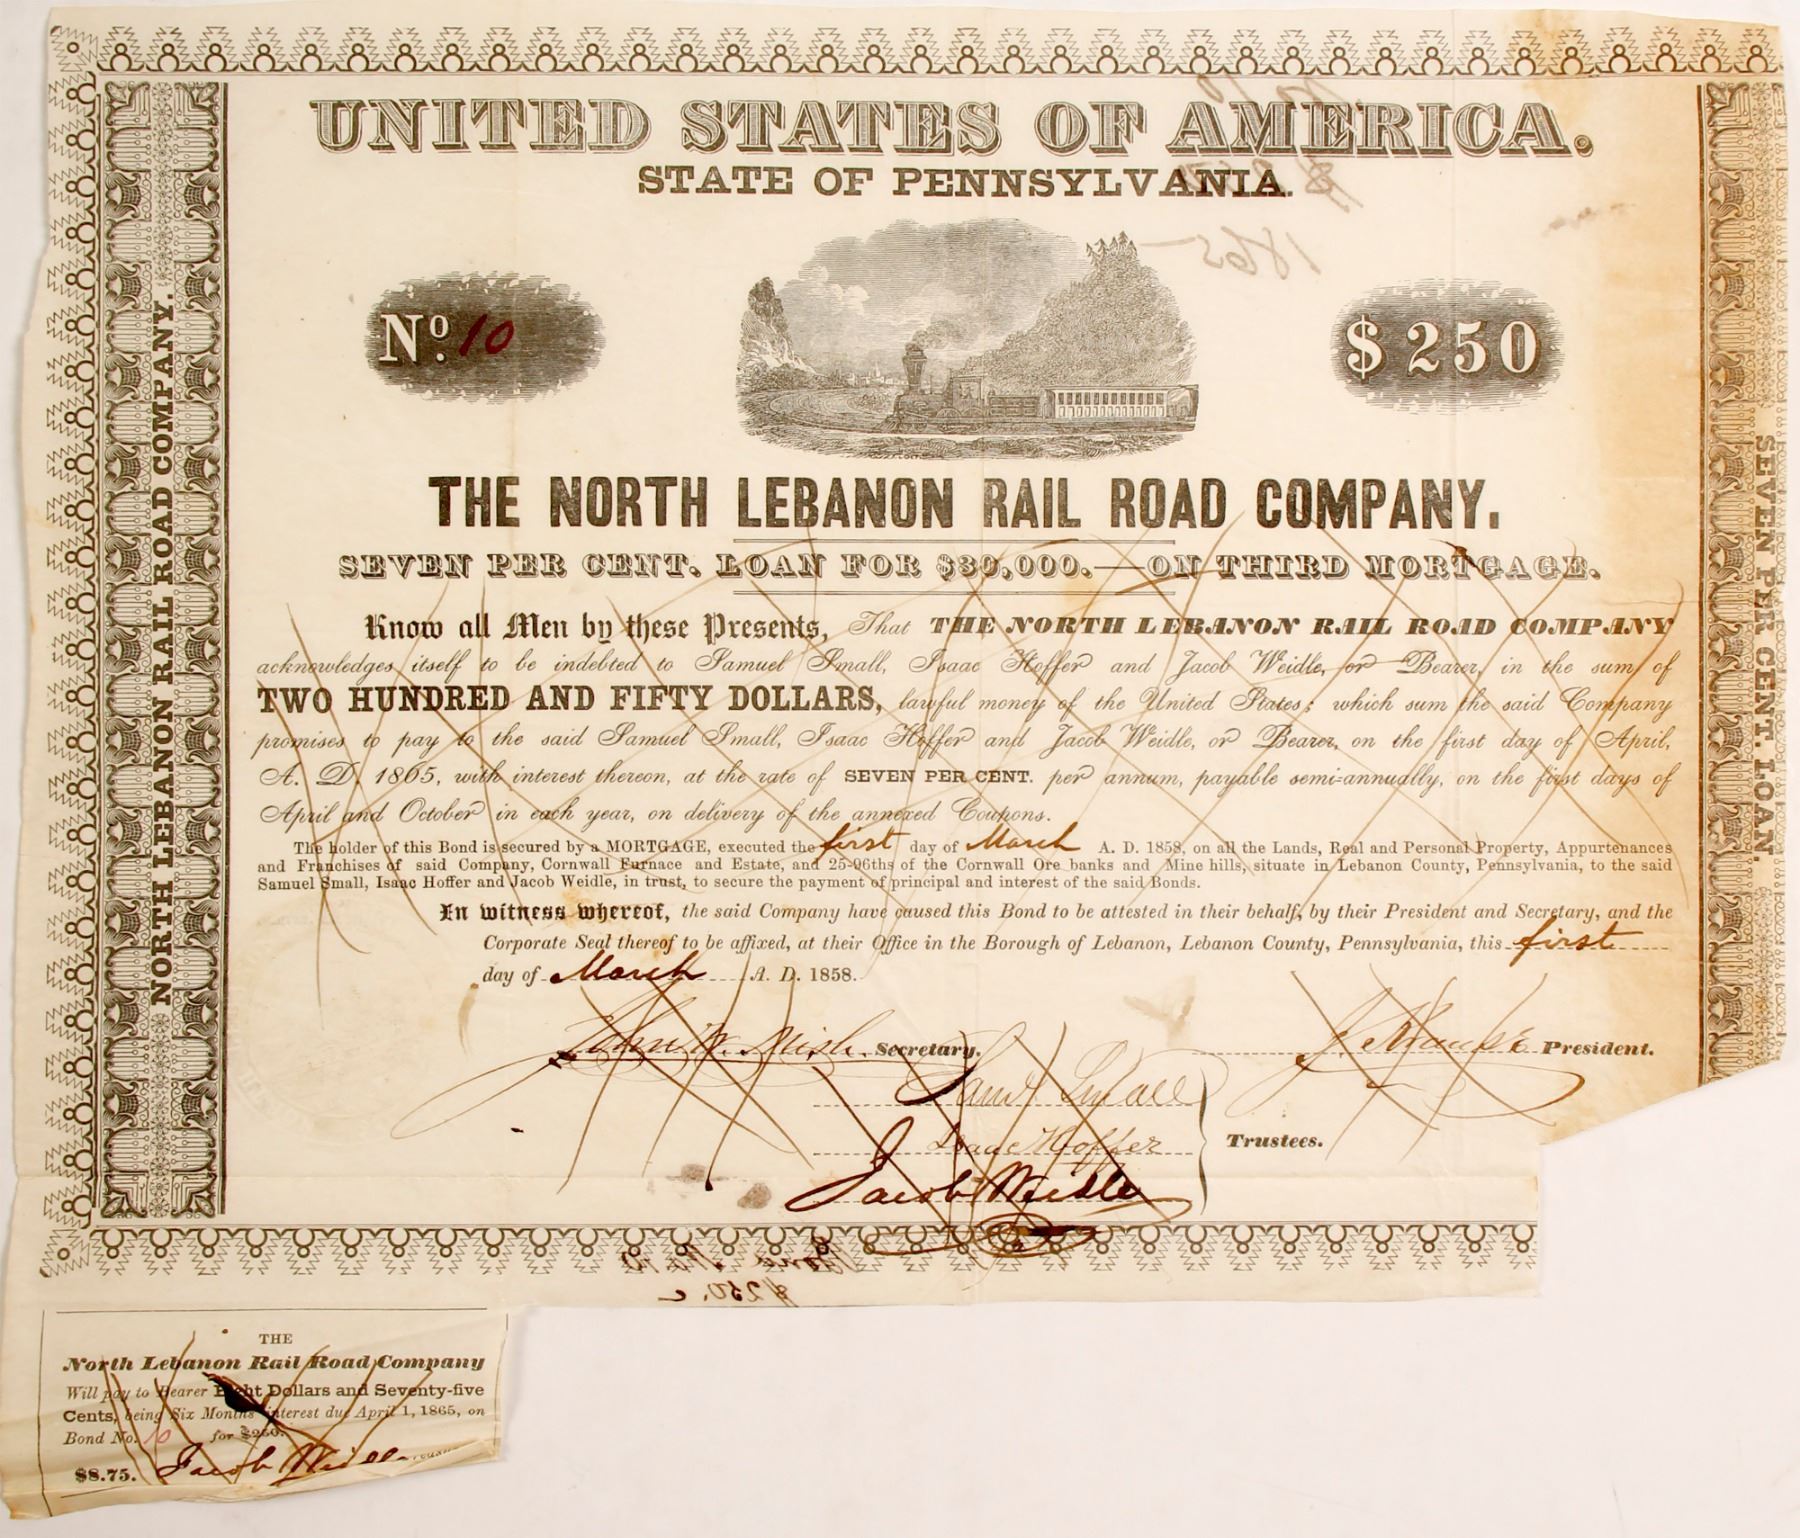 UNITED STATES OF AMERICA.
STATE OF PENNSYLVANIA.
1865
No. 10
$250
THE NORTH LEBANON RAIL ROAD COMPANY.
SEVEN PER CENT. LOAN FOR $30,000.—ON THIRD MORTGAGE.
Know all Men by these Presents, That THE NORTH LEBANON RAIL ROAD COMPANY
acknowledges itself to be indebted to Samuel Small, Isaac Hoffer and Jacob Weidle, or Bearer, in the sum of
TWO HUNDRED AND FIFTY DOLLARS, lawful money of the United States; which sum the said Company
promises to pay to the said Samuel Small, Isaac Hoffer and Jacob Weidle, or Bearer, on the first day of April,
A. D. 1865, with interest thereon, at the rate of SEVEN PER CENT. per annum, payable semi-annually, on the first days of
April and October in each year, on delivery of the annexed Coupons.
The holder of this Bond is secured by a MORTGAGE, executed the first day of March A. D. 1858, on all the Lands, Real and Personal Property, Appurtenances
and Franchises of said Company, Cornwall Furnace and Estate, and 25-96ths of the Cornwall Ore banks and Mine hills, situate in Lebanon County, Pennsylvania, to the said
Samuel Small, Isaac Hoffer and Jacob Weidle, in trust, to secure the payment of principal and interest of the said Bonds.
In witness whereof, the said Company have caused this Bond to be attested in their behalf, by their President and Secretary, and the
Corporate Seal thereof to be affixed, at their Office in the Borough of Lebanon, Lebanon County, Pennsylvania, this first
day of March A. D. 1858.
John W. Mish Secretary.
President.
Saml Small
Isaac Hoffer
Trustees.
Jacob Weidle
$250.
NORTH LEBANON RAIL ROAD COMPANY.
SEVEN PER CENT. LOAN.
THE
North Lebanon Rail Road Company
Will pay to Bearer Eight Dollars and Seventy-five
Cents, being Six Months interest due April 1, 1865, on
Bond No. 10 for $250.
$8.75. Jacob Weidle